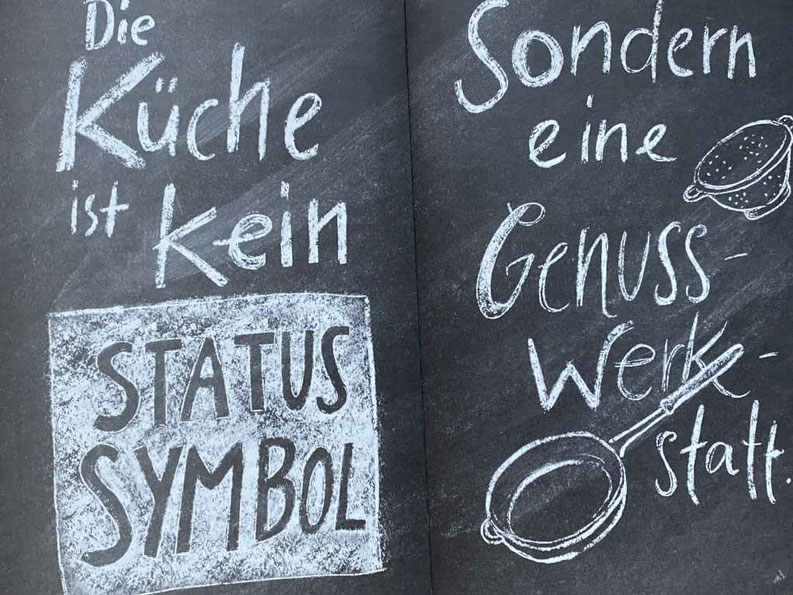 Die
Küche
ist kein
STATUS
SYMBOL
Sondern
eine
Genuss-
werk-
statt.